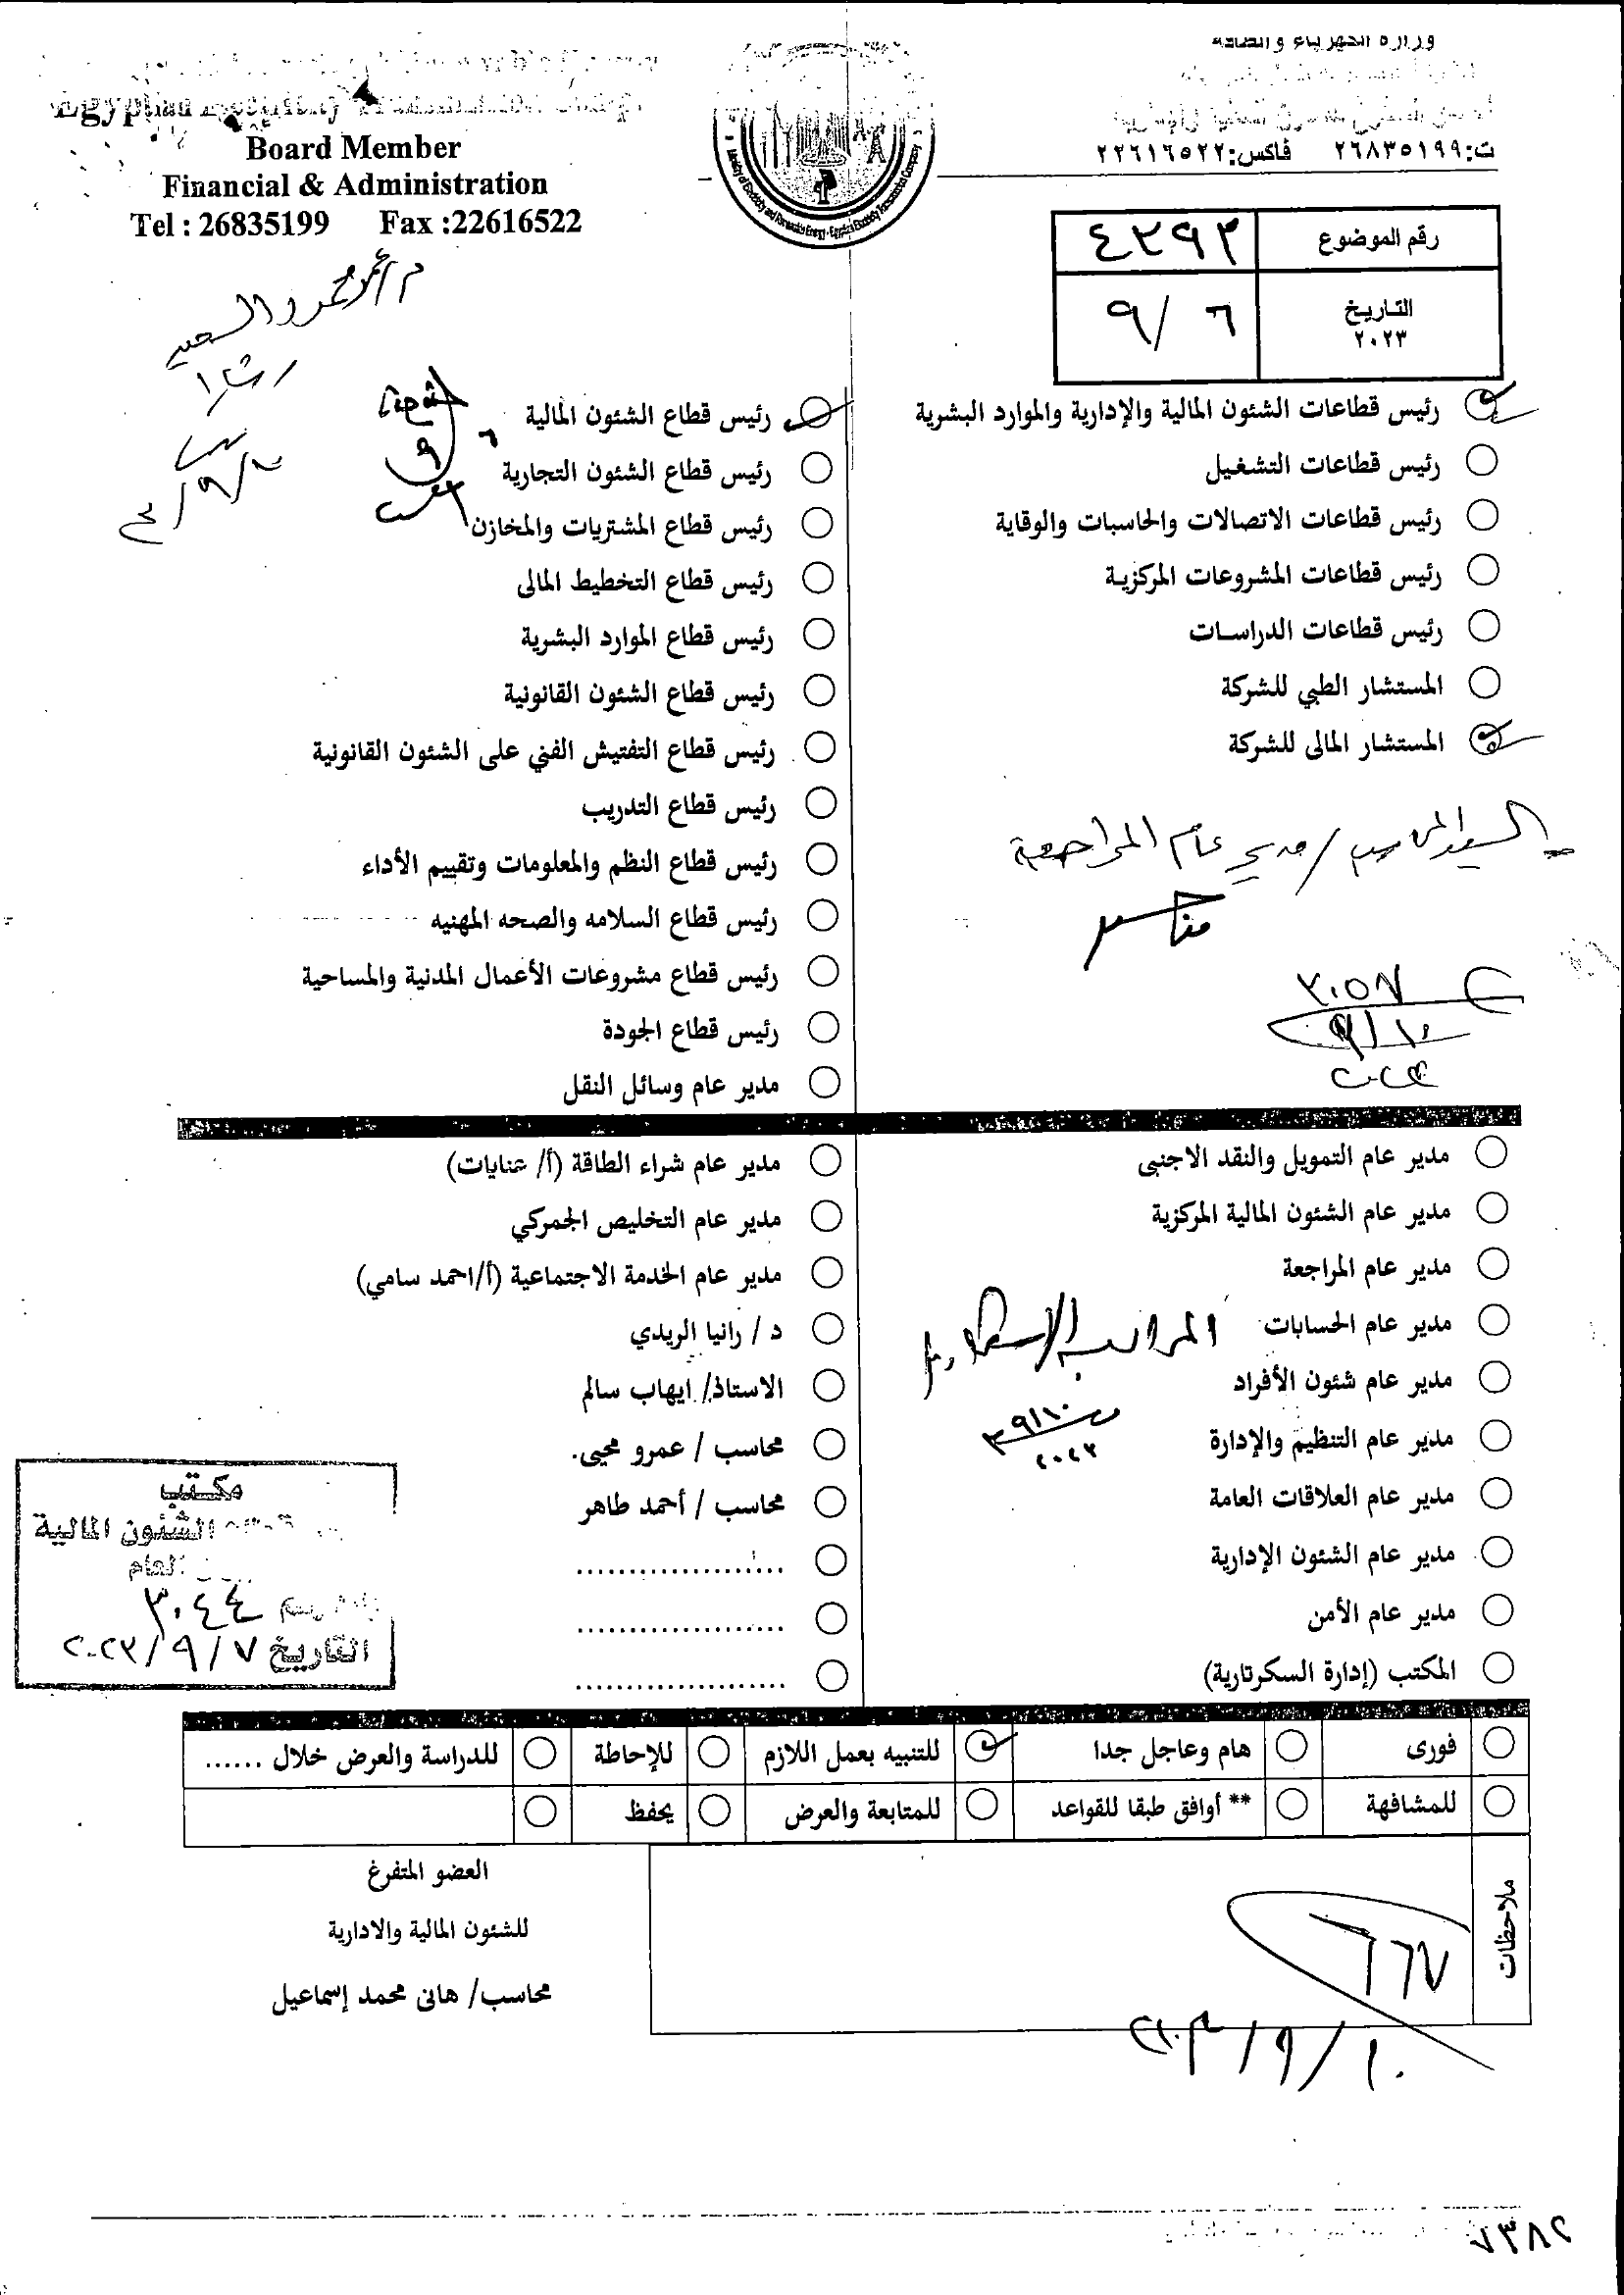 وزارة الكهرباء والطاقة
Egyptian Electricity Transmission Comp
Board Member
Financial & Administration
Tel : 26835199 Fax :22616522
ت:٢٦٨٣٥١٩٩ فاكس:٢٢٦١٦٥٢٢
رقم الموضوع ٤٣٩٣
التاريخ ٢٠٢٣ ٩/٦
رئيس قطاعات الشئون المالية والإدارية والموارد البشرية
رئيس قطاعات التشغيل
رئيس قطاعات الاتصالات والحاسبات والوقاية
رئيس قطاعات المشروعات المركزية
رئيس قطاعات الدراسات
المستشار الطبي للشركة
المستشار المالى للشركة
مدير عام المراجعة
٣٠٥٧
٩/١٠
رئيس قطاع الشئون المالية
رئيس قطاع الشئون التجارية
رئيس قطاع المشتريات والمخازن
رئيس قطاع التخطيط المالى
رئيس قطاع الموارد البشرية
رئيس قطاع الشئون القانونية
رئيس قطاع التفتيش الفني على الشئون القانونية
رئيس قطاع التدريب
رئيس قطاع النظم والمعلومات وتقييم الأداء
رئيس قطاع السلامه والصحه المهنيه
رئيس قطاع مشروعات الأعمال المدنية والمساحية
رئيس قطاع الجودة
مدير عام وسائل النقل
مدير عام التمويل والنقد الاجنبى
مدير عام الشئون المالية المركزية
مدير عام المراجعة
مدير عام الحسابات
مدير عام شئون الأفراد
مدير عام التنظيم والإدارة
مدير عام العلاقات العامة
مدير عام الشئون الإدارية
مدير عام الأمن
المكتب (إدارة السكرتارية)
مدير عام شراء الطاقة (أ/ عنايات)
مدير عام التخليص الجمركي
مدير عام الخدمة الاجتماعية (أ/احمد سامي)
د / رانيا الريدي
الاستاذ/ ايهاب سالم
محاسب / عمرو محيى.
محاسب / أحمد طاهر
مكتب
الشئون المالية
٣٠٤٤
التاريخ ٢٠٢٣/٩/٧
فورى هام وعاجل جدا للتنبيه بعمل اللازم للإحاطة للدراسة والعرض خلال ......
للمشافهة ** أوافق طبقا للقواعد للمتابعة والعرض يحفظ
ملاحظات
٦٦٧
٢٠٢٣/٩/١٠
العضو المتفرغ
للشئون المالية والادارية
محاسب/ هانى محمد إسماعيل
٧٣٨٢